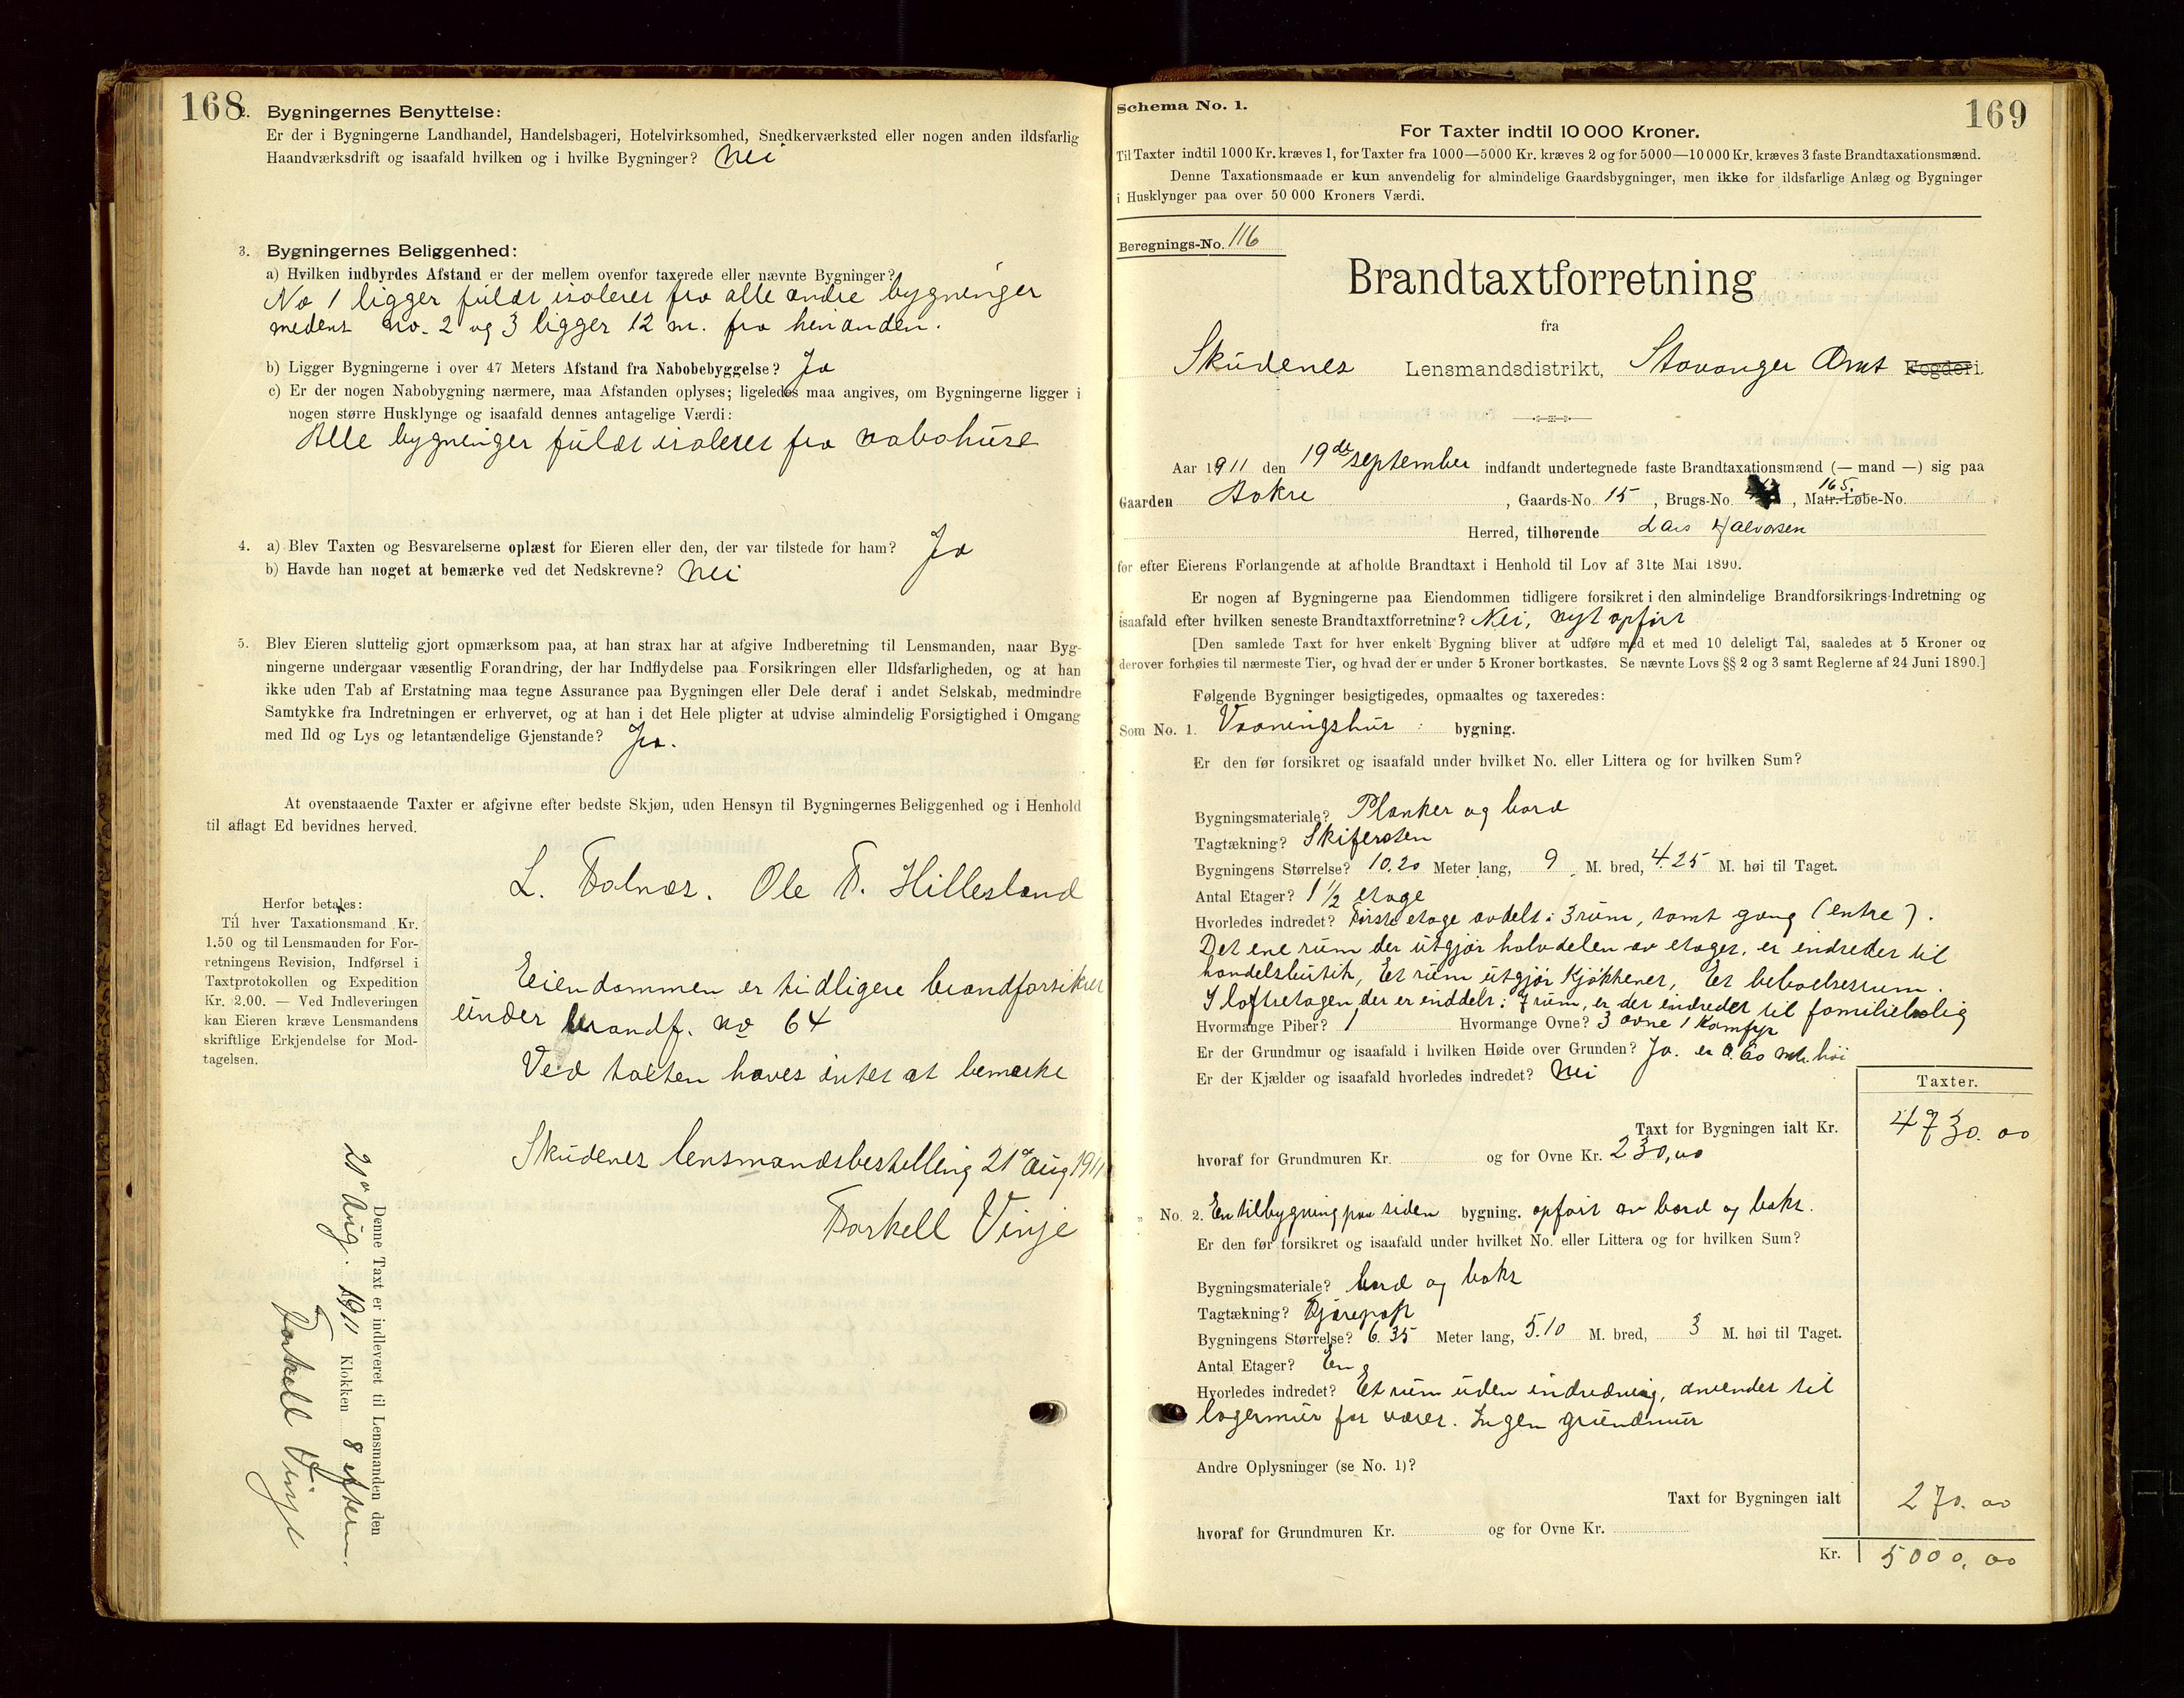 168
2. Bygningernes Benyttelse:
Er der i Bygningerne Landhandel, Handelsbageri, Hotelvirksomhed, Snedkerværksted eller nogen anden ildsfarlig
Haandværksdrift og isaafald hvilken og i hvilke Bygninger? Nei
3. Bygningernes Beliggenhed:
a) Hvilken indbyrdes Afstand er der mellem ovenfor taxerede eller nævnte Bygninger?
No 1 ligger fuldt isoleret fra alle andre bygninger
medens no. 2 og 3 ligger 12 m. fra hinanden.
b) Ligger Bygningerne i over 47 Meters Afstand fra Nabobebyggelse? Ja
c) Er der nogen Nabobygning nærmere, maa Afstanden oplyses; ligeledes maa angives, om Bygningerne ligger i
nogen større Husklynge og isaafald dennes antagelige Værdi:
Alle bygninger fuldt isoleret fra nabohuse
4. a) Blev Taxten og Besvarelserne oplæst for Eieren eller den, der var tilstede for ham? Ja
b) Havde han noget at bemærke ved det Nedskrevne? Nei
5. Blev Eieren sluttelig gjort opmærksom paa, at han strax har at afgive Indberetning til Lensmanden, naar Byg-
ningerne undergaar væsentlig Forandring, der har Indflydelse paa Forsikringen eller Ildsfarligheden, og at han
ikke uden Tab af Erstatning maa tegne Assurance paa Bygningen eller Dele deraf i andet Selskab, medmindre
Samtykke fra Indretningen er erhvervet, og at han i det Hele pligter at udvise almindelig Forsigtighed i Omgang
med Ild og Lys og letantændelige Gjenstande? Ja.
At ovenstaaende Taxter er afgivne efter bedste Skjøn, uden Hensyn til Bygningernes Beliggenhed og i Henhold
til aflagt Ed bevidnes herved.
L. Falnes. Ole T. Hillesland
Herfor betales:
Til hver Taxationsmand Kr.
1.50 og til Lensmanden for For-
retningens Revision, Indførsel i
Taxtprotokollen og Expedition
Kr. 2.00. — Ved Indleveringen
kan Eieren kræve Lensmandens
skriftlige Erkjendelse for Mod-
tagelsen.
Eiendommen er tidligere brandforsikret
under brandf. no 64
Ved taksten haves intet at bemerke
Skudenes lensmandsbestilling 21de aug 1911
Torkell Vinje
Denne Taxt er indleveret til Lensmanden den
21de Aug. 1911 Klokken 8 efterm.
Torkell Vinje
Schema No. 1.
169
For Taxter indtil 10 000 Kroner.
Til Taxter indtil 1000 Kr. kræves 1, for Taxter fra 1000—5000 Kr. kræves 2 og for 5000—10 000 Kr. kræves 3 faste Brandtaxationsmænd.
Denne Taxationsmaade er kun anvendelig for almindelige Gaardsbygninger, men ikke for ildsfarlige Anlæg og Bygninger
i Husklynger paa over 50 000 Kroners Værdi.
Beregnings-No. 116
Brandtaxtforretning
fra
Skudenes Lensmandsdistrikt, Stavanger Amt Fogderi.
Aar 1911 den 19de september indfandt undertegnede faste Brandtaxationsmænd (— mand —) sig paa
Gaarden Aokre, Gaards-No. 15, Brugs-No. 165., Matr.-Løbe-No.
Herred, tilhørende Lars Halvorsen
for efter Eierens Forlangende at afholde Brandtaxt i Henhold til Lov af 31te Mai 1890.
Er nogen af Bygningerne paa Eiendommen tidligere forsikret i den almindelige Brandforsikrings-Indretning og
isaafald efter hvilken seneste Brandtaxtforretning? Nei, nyt opført
[Den samlede Taxt for hver enkelt Bygning bliver at udføre med et med 10 deleligt Tal, saaledes at 5 Kroner og
derover forhøies til nærmeste Tier, og hvad der er under 5 Kroner bortkastes. Se nævnte Lovs §§ 2 og 3 samt Reglerne af 24 Juni 1890.]
Følgende Bygninger besigtigedes, opmaaltes og taxeredes:
Som No. 1. Vaaningshus bygning.
Er den før forsikret og isaafald under hvilket No. eller Littera og for hvilken Sum?
Bygningsmateriale? Planker og bord
Tagtækning? Skifersten
Bygningens Størrelse? 10.20 Meter lang, 9 M. bred, 4.25 M. høi til Taget.
Antal Etager? 1 1/2 etage
Hvorledes indredet? Første etage avdelt i 3 rum, samt gang (entre).
Det ene rum der utgjør halvdelen av etager, er indredet til
handelsbutik, Et rum utgjør Kjøkkenet, Et beboelsesrum.
I loftsetagen der er inddelt i 7 rum, er der indredet til familiebolig
Hvormange Piber? 1 Hvormange Ovne? 3 ovne 1 komfyr
Er der Grundmur og isaafald i hvilken Høide over Grunden? Ja. er 0.60 mtr. høi
Er der Kjælder og isaafald hvorledes indredet? Nei
Taxter.
Taxt for Bygningen ialt Kr. 4730.00
hvoraf for Grundmuren Kr. og for Ovne Kr. 230,00
„ No. 2. En tilbygning paa siden bygning. opført av bord og boks.
Er den før forsikret og isaafald under hvilket No. eller Littera og for hvilken Sum?
Bygningsmateriale? bord og boks
Tagtækning? Tjærepap
Bygningens Størrelse? 6.35 Meter lang, 5.10 M. bred, 3 M. høi til Taget.
Antal Etager? En
Hvorledes indredet? Et rum uden indredning, anvendes til
lagerrum for varer. Ingen grundmur
Andre Oplysninger (se No. 1)?
Taxt for Bygningen ialt 270.00
hvoraf for Grundmuren Kr. og for Ovne Kr.
Kr. 5000.00